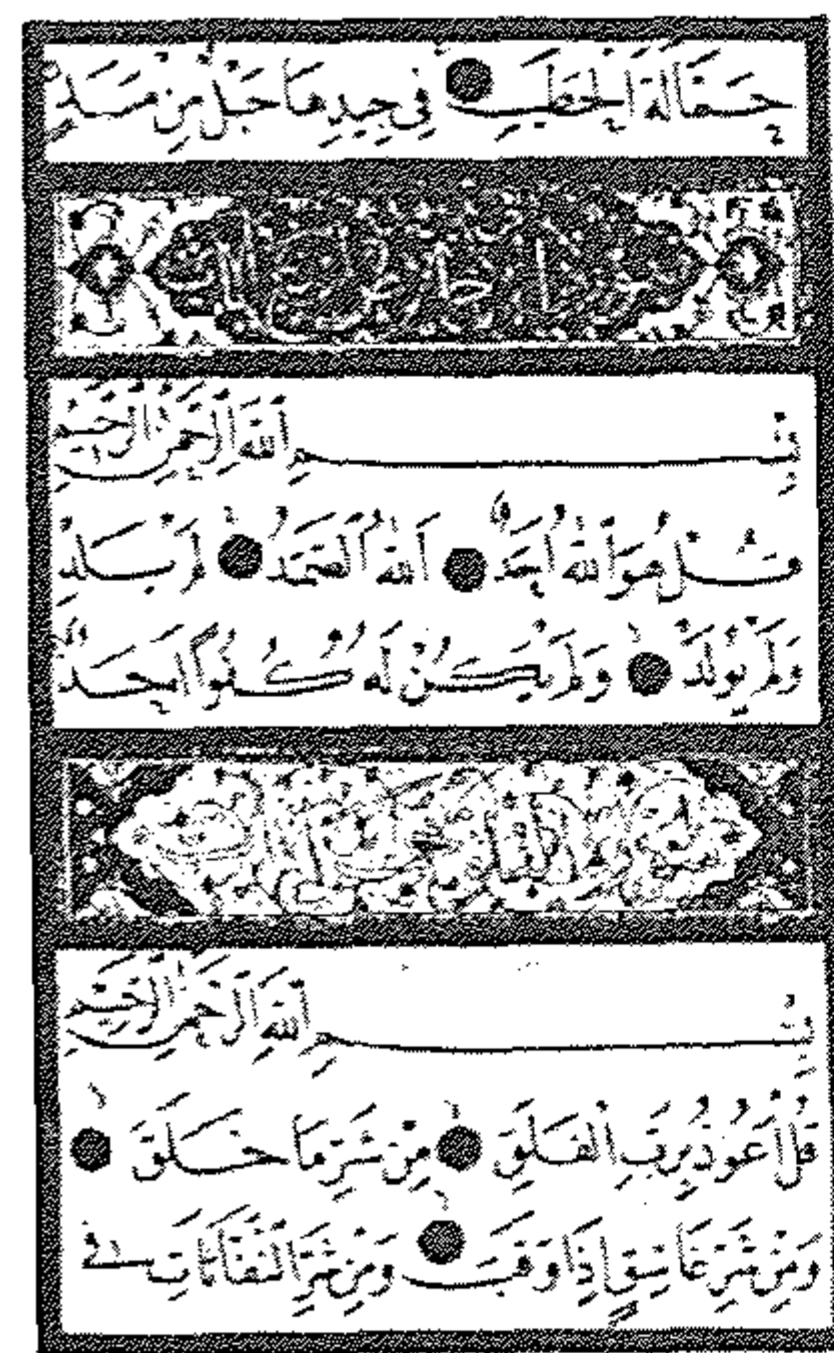 حَمَّالَةَ الْحَطَبِ فِي جِيدِهَا حَبْلٌ مِنْ مَسَدٍ
بِسْمِ اللَّهِ الرَّحْمَنِ الرَّحِيمِ
قُلْ هُوَ اللَّهُ أَحَدٌ اللَّهُ الصَّمَدُ لَمْ يَلِدْ
وَلَمْ يُولَدْ وَلَمْ يَكُنْ لَهُ كُفُوًا أَحَدٌ
بِسْمِ اللَّهِ الرَّحْمَنِ الرَّحِيمِ
قُلْ أَعُوذُ بِرَبِّ الْفَلَقِ مِنْ شَرِّ مَا خَلَقَ
وَمِنْ شَرِّ غَاسِقٍ إِذَا وَقَبَ وَمِنْ شَرِّ النَّفَّاثَاتِ فِي